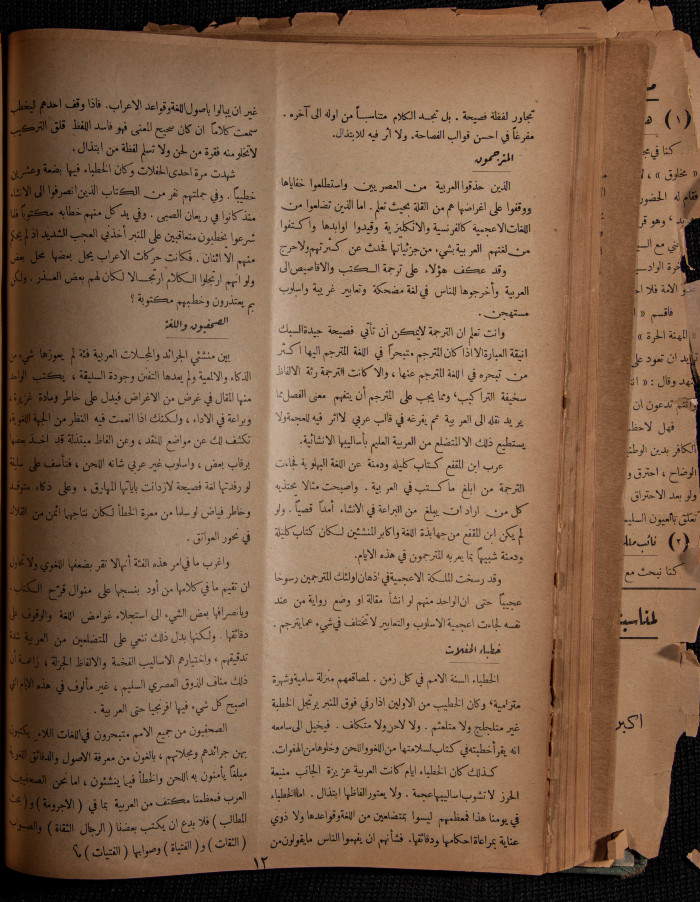 تجاور لفظة فصيحة . بل تجد الكلام متناسباً من اوله الى آخره .
مفرغاً في احسن قوالب الفصاحة . ولا اثر فيه للابتذال .
المترجمون
الذين حذقوا العربية من العصريين واستطلعوا خفاياها
ووقفوا على اغراضها هم من القلة بحيث تعلم . اما الذين تضلعوا من
اللغات الاعجمية كالفرنسية والانكليزية وقيدوا اوابدها واكتفوا
من لغتهم العربية بشيء من جزئياتها فحدث عن كثرتهم ولا حرج
وقد عكف هؤلاء على ترجمة الكتب والاقاصيص الى
العربية وأخرجوها للناس في لغة مضحكة وتعابير غريبة واسلوب
مستهجن .
وانت تعلم ان الترجمة لا يمكن أن تأتي فصيحة جيدة السبك
انيقة العبارة الا اذا كان المترجم متبحراً في اللغة المترجم اليها اكثر
من تبحره في اللغة المترجم عنها ، والا كانت الترجمة رثة الالفاظ
سخيفة التراكيب ، ومما يجب على المترجم أن يتفهم معنى الفصل مما
يريد نقله الى العربية ثم يفرغه في قالب عربي لا اثر فيه للعجمة ولا
يستطيع ذلك الا المتضلع من العربية العليم بأساليبها الانشائية .
عرب ابن المقفع كتاب كليله ودمنة عن اللغة البهلوية فجاءت
الترجمة من ابلغ ما كتب في العربية . واصبحت مثالا يحتذيه
كل من اراد ان يبلغ من البراعة في الانشاء أمداً قصياً . ولو
لم يكن ابن المقفع من جهابذة اللغة واكابر المنشئين لكان كتاب كليلة
ودمنة شبيهاً بما يعربه المترجمون في هذه الايام .
وقد رسخت الملكة الاعجمية في اذهان اولئك المترجمين رسوخاً
عجيباً حتى ان الواحد منهم لو انشأ مقالة او وضع رواية من عند
نفسه لجاءت اعجمية الاسلوب والتعابير لا تختلف في شيء عما يترجم .
خطباء الحفلات
الخطباء السنة الامم في كل زمن . لمصاقعهم منزلة سامية وشهرة
مترامية ، وكان الخطيب من الاولين اذا رقي فوق المنبر يرتجل الخطبة
غير متلجلج ولا متلعثم . ولا لاحن ولا متكلف . فيخيل الى سامعه
انه يقرأ خطبته في كتاب لسلامتها من اللغو واللحن وخلوها من الهفوات .
كذلك كان الخطباء ايام كانت العربية عزيزة الجانب منيعة
الحرز لا تشوب اساليبها عجمة . ولا يعتور الفاظها ابتذال . اما الخطباء
في يومنا هذا فمعظمهم ليسوا بمتضلعين من اللغة وقواعدها ولا ذوي
عناية بمراعاة احكامها ودقائقها . فشأنهم ان يفهموا الناس ما يقولون من
غير ان يبالوا باصول اللغة وقواعد الاعراب . فاذا وقف احدهم ليخطب
سمعت كلاماً ان كان صحيح المعنى فهو فاسد اللفظ قلق التركيب
لا تخلو منه فقرة من لحن ولا تسلم لفظة من ابتذال .
شهدت مرة احدى الحفلات وكان الخطباء فيها بضعة وعشرين
خطيباً . وفي جملتهم نفر من الكتاب الذين انصرفوا الى الانشاء
منذ كانوا في ريعان الصبى . وفي يد كل منهم خطابه مكتوباً فلما
شرعوا يخطبون متعاقبين على المنبر أخذني العجب الشديد اذ لم يحكم
منهم الا اثنان . فكانت حركات الاعراب يحل بعضها محل بعض
ولو انهم ارتجلوا الكلام ارتجالا لكان لهم بعض العذر . ولكن
بم يعتذرون وخطبهم مكتوبة ؟
الصحفيون واللغة
بين منشئي الجرائد والمجلات العربية فئة لم يعوزها شيء من
الذكاء والالمعية ولم يعدها التفنن وجودة السليقة ، يكتب الواحد
منها المقال في غرض من الاغراض فيدل على خاطر ومادة غزيرة ،
وبراعة في الاداء ، ولكنك اذا انعمت فيه النظر من الجهة اللغوية
تكشف لك عن مواضع للنقد ، وعن الفاظ مبتذلة قد اخذ بعضها
برقاب بعض ، واسلوب غير عربي شانه اللحن ، فتأسف على سليقة
لو رفدتها لغة فصيحة لازدانت بآياتها المهارق ، وعلى ذكاء متوقد
وخاطر فياض لو سلما من معرة الخطأ لكان نتاجهما اثمن من القلائد
في نحور العواتق .
واغرب ما في امر هذه الفئة أنها لا تقر بضعفها اللغوي ولا تحاول
ان تقيم ما في كلامها من أود بنسجها على منوال قرّح الكتاب
وبانصرافها بعض الشيء الى استجلاء غوامض اللغة والوقوف على
دقائقها . ولكنها بدل ذلك تنعي على المتضلعين من العربية شدة
تدقيقهم ، واختيارهم الاساليب الفخمة والالفاظ الجزلة ، زاعمة أن
ذلك مناف للذوق العصري السليم ، غير مألوف في هذه الايام التي
اصبح كل شيء فيها افرنجيا حتى العربية .
الصحفيون من جميع الامم متبحرون في اللغات اللاء يكتبون
بهن جرائدهم ومجلاتهم ، بالغون من معرفة الاصول والدقائق اللغوية
مبلغاً يأمنون به اللحن والخطأ فيما ينشئون ، اما نحن الصحفيين
العرب فمعظمنا مكتف من العربية بما في ( الاجرومة ) و ( بحث
المطالب ) فلا بدع ان يكتب بعضنا ( الرجال الثقاة ) والصواب
( الثقات ) و ( الفتياة ) وصوابها ( الفتيات ) ما
١٢
( ١ )
كنا في
« مخلوق » ،
فقام له الحضور
فاقسم
« المهنة الحرة »
يهد وقال : «
فهل لاحظ
الكافر بدين
الوضاح ، احترق
ولو بعد الاحتراق
( ٢ )
كنا نبحث مع